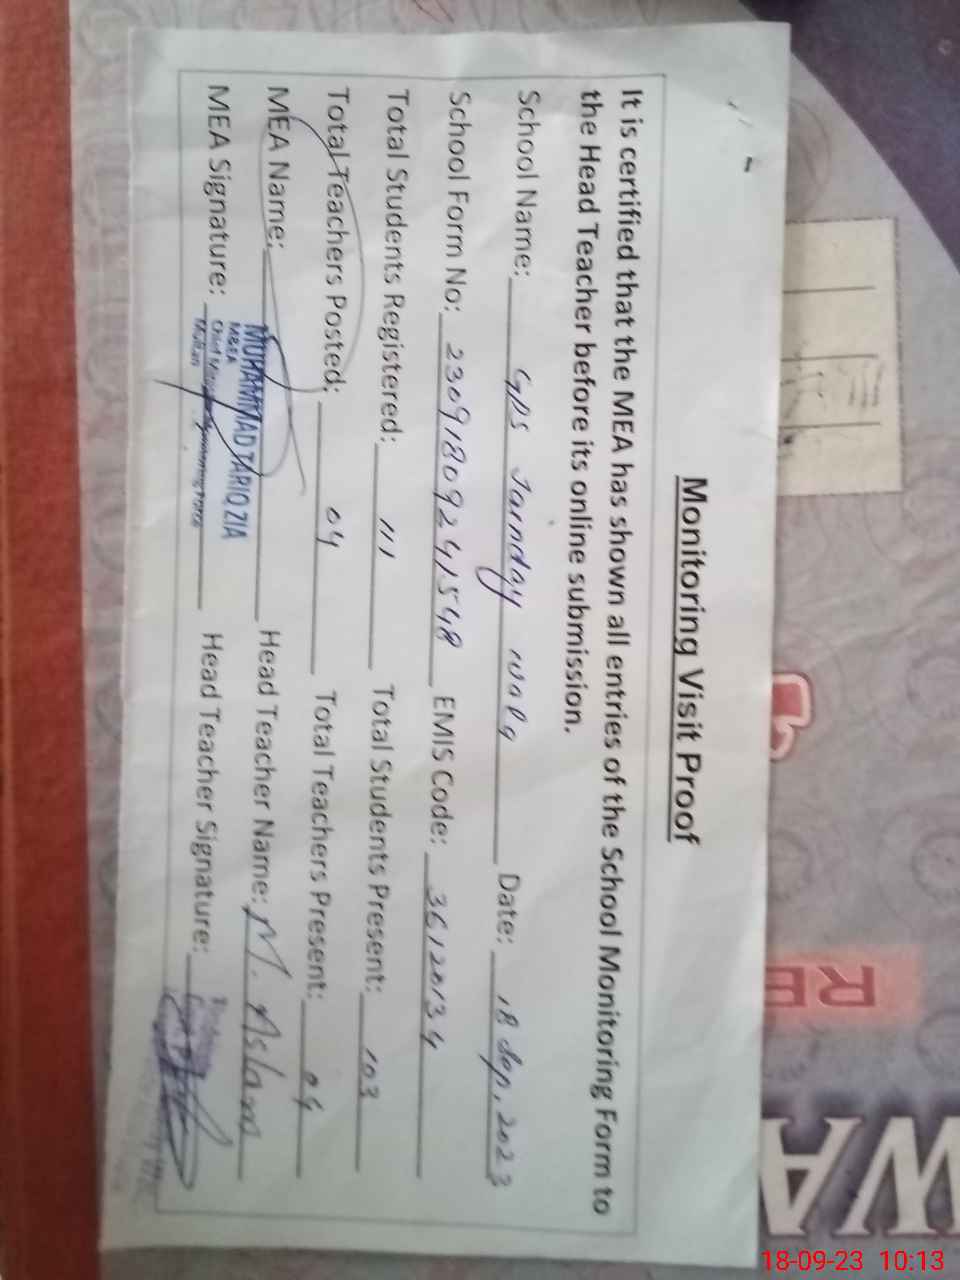 Monitoring Visit Proof
It is certified that the MEA has shown all entries of the School Monitoring Form to
the Head Teacher before its online submission.
School Name: GPS Jainday wala Date: 18 Sep, 2023
School Form No: 23091809241548 EMIS Code: 36120134
Total Students Registered: 111 Total Students Present: 103
Total Teachers Posted: 04 Total Teachers Present: 04
MEA Name: MUHAMMAD TARIQ ZIA Head Teacher Name: M. Aslam
M&EA
Chief Monitoring Force
Multan
MEA Signature: Head Teacher Signature:
RE
WA
18-09-23 10:13